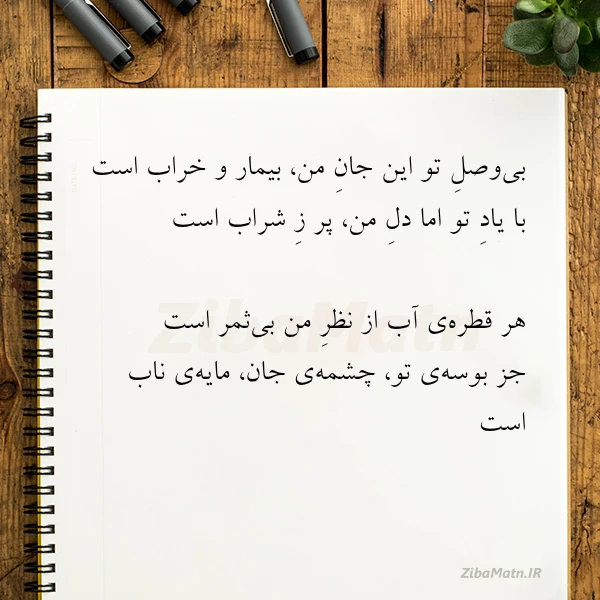 بی‌وصلِ تو این جانِ من، بیمار و خراب است
با یادِ تو اما دلِ من، پر زِ شراب است
هر قطره‌ی آب از نظرِ من بی‌ثمر است
جز بوسه‌ی تو، چشمه‌ی جان، مایه‌ی ناب
است
ZibaMatn
ZibaMatn.IR